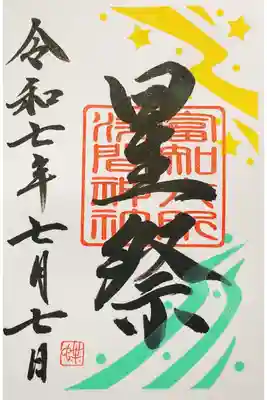 星祭
富知六所
浅間神社
令和七年七月七日